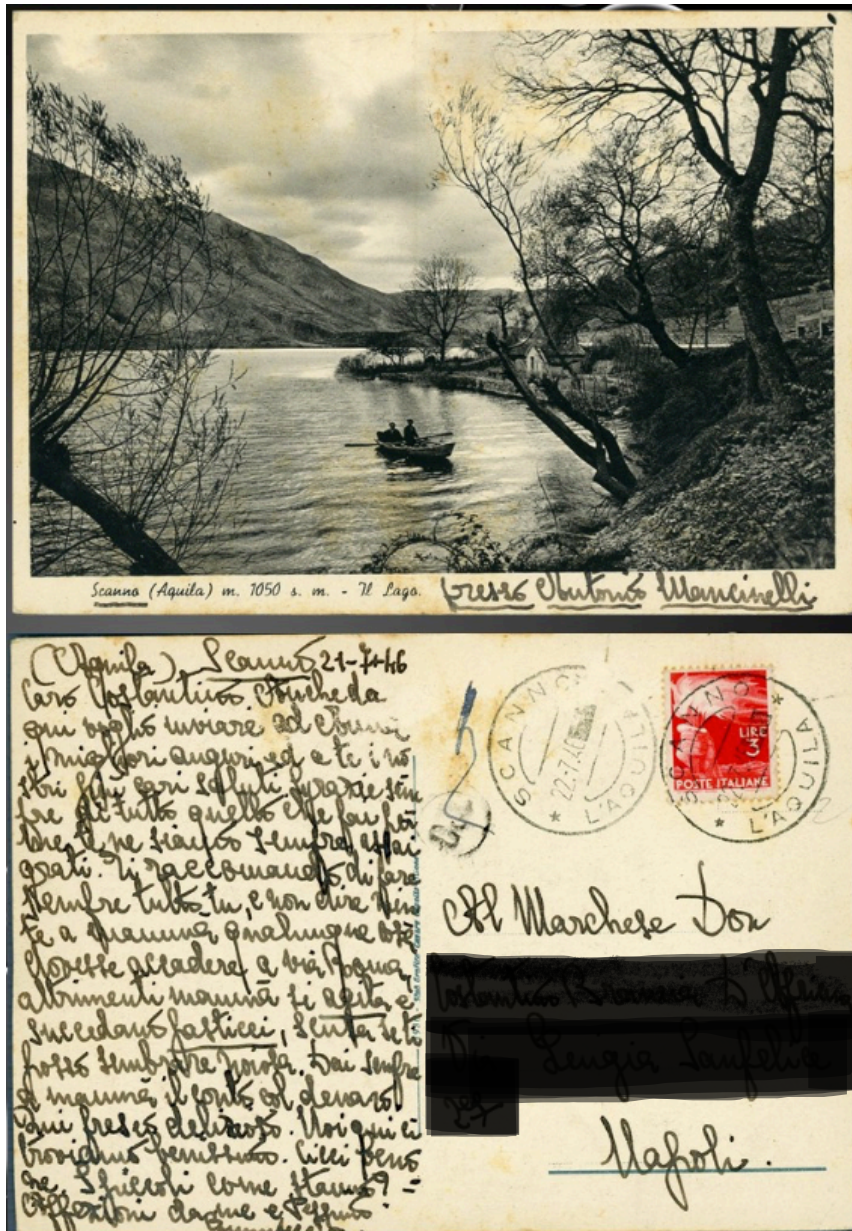 Scanno (Aquila) m. 1050 s. m. - Il Lago.
presso Antonio Mancinelli
(Aquila) Scanno 21-7-46
Caro Costantino Anche da
qui voglio inviare ad
i migliori auguri ed a te i no
stri più cari saluti, grazie sem
pre di tutto quello che fai per
me, te ne siamo sempre assai
grati. Ti raccomando di fare
sempre tutto tu, e non dire nien
te a mammà qualunque cosa
dovesse accadere a via Roma
altrimenti mammà si agita e
succedono pasticci, scusa se ti
posso sembrare noiosa. Dai sempre
a mammà il conto col denaro.
Qui fresco delizioso. Noi qui ci
troviamo benissimo. Cicci beno
ne. I piccoli come stanno? =
Affezioni da me e
SCANNO
22.7.46
* L'AQUILA
LIRE
3
POSTE ITALIANE
SCANNO *
* L'AQUILA
Al Marchese Don
Sanfelice
Napoli.